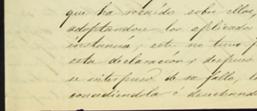 que ha recaido sobre ellos,
adoptandose los aplicado
instancia; este no tuvo f
esta declaracion y despues
se interpuso de su fallo, l
concediendola ó desechand